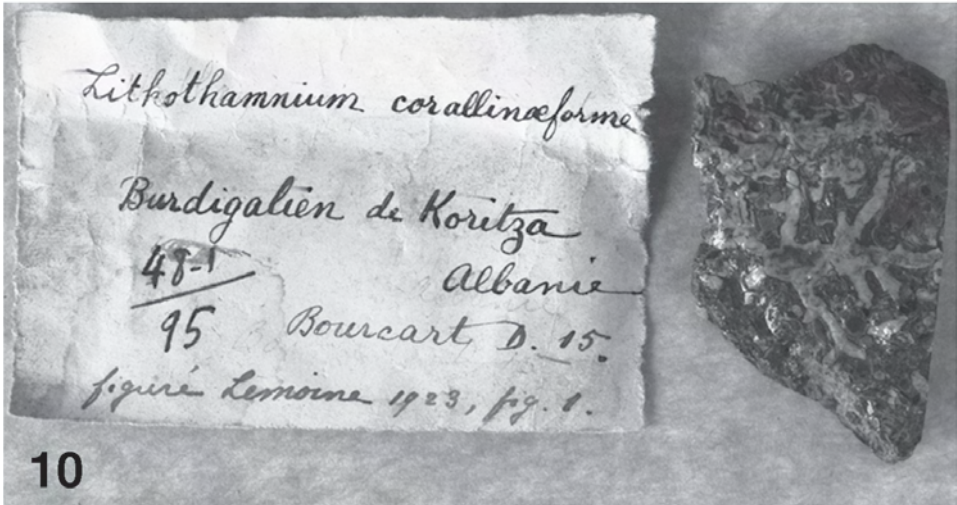 Lithothamnium corallinæforme
Burdigalien de Koritza
48-1
95
Albanie
Bourcart D. 15.
figuré Lemoine 1923, fig. 1.
10